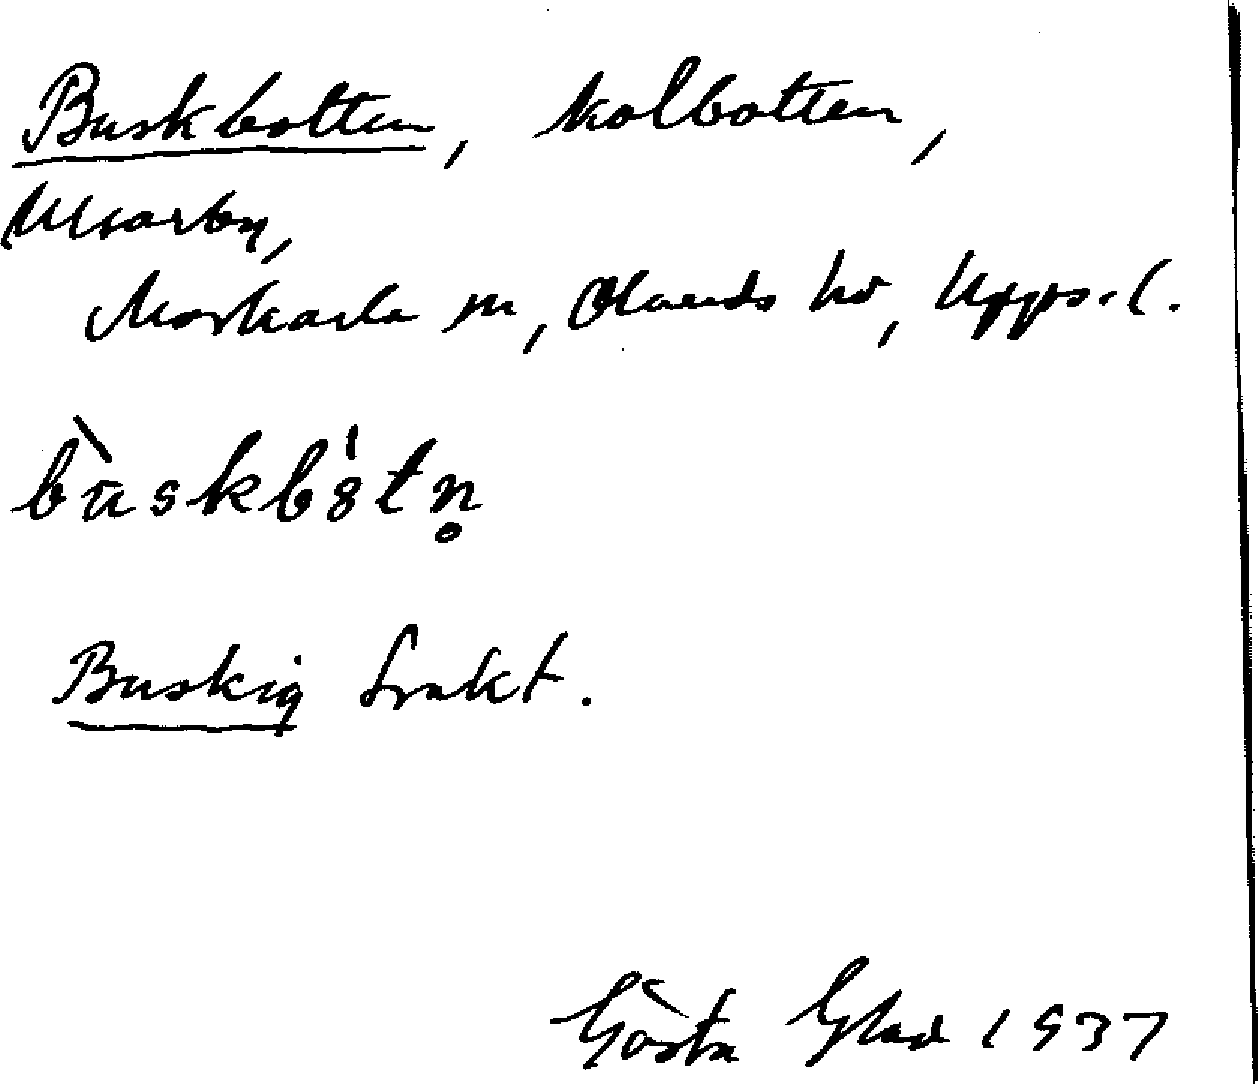 Buskbotten, kolbotten,
Ulvarby,
Morkarla sn, Olands hd, Upps. l.
bùskb 8́tn̥
Buskig trakt.
Gösta Glad 1937